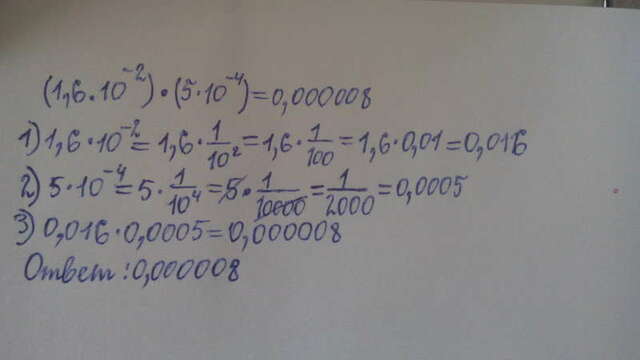 (1,6·10⁻²)·(5·10⁻⁴)=0,000008
1) 1,6·10⁻²=1,6·1/10²=1,6·1/100=1,6·0,01=0,016
2) 5·10⁻⁴=5·1/10⁴=5·1/10000=1/2000=0,0005
3) 0,016·0,0005=0,000008
Ответ:0,000008